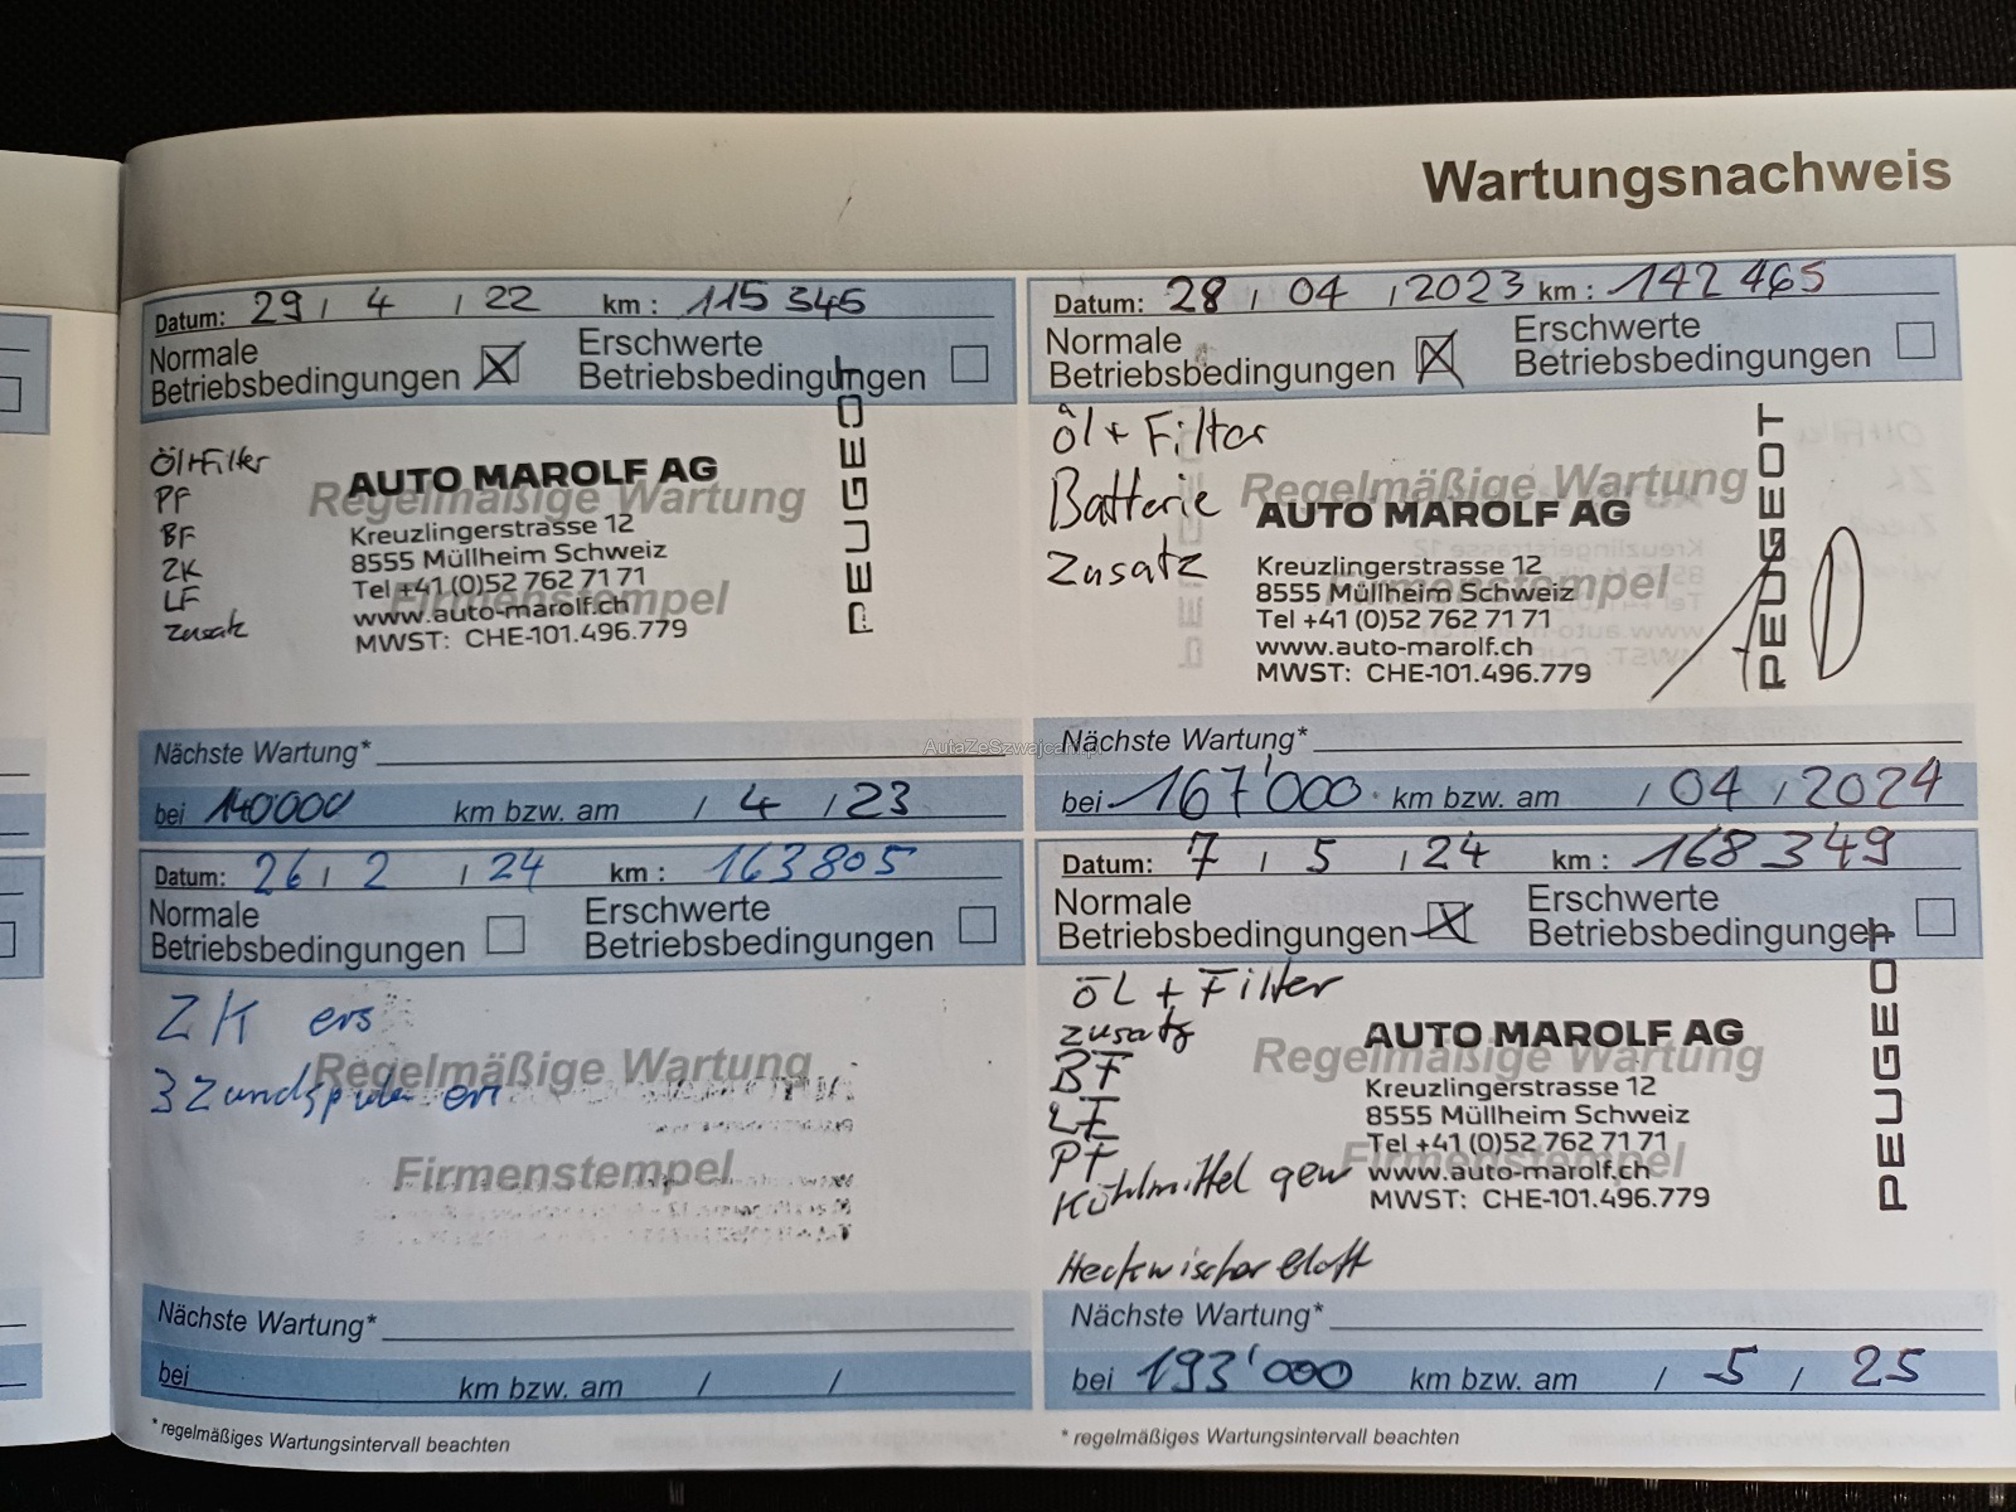 Wartungsnachweis
Datum: 29 / 4 / 22 km : 115 345
Normale
Betriebsbedingungen
Erschwerte
Betriebsbedingungen
Öl+Filter
PF
BF
ZK
LF
Zusatz
Regelmäßige Wartung
Firmenstempel
AUTO MAROLF AG
Kreuzlingerstrasse 12
8555 Müllheim Schweiz
Tel +41 (0)52 762 71 71
www.auto-marolf.ch
MWST: CHE-101.496.779
PEUGEOT
Nächste Wartung*
bei 140000 km bzw. am / 4 / 23
Datum: 28 / 04 / 2023 km : 142 465
Normale
Betriebsbedingungen
Erschwerte
Betriebsbedingungen
Öl + Filter
Batterie
Zusatz
Regelmäßige Wartung
Firmenstempel
AUTO MAROLF AG
Kreuzlingerstrasse 12
8555 Müllheim Schweiz
Tel +41 (0)52 762 71 71
www.auto-marolf.ch
MWST: CHE-101.496.779
PEUGEOT
Nächste Wartung*
bei 167'000 km bzw. am / 04 / 2024
AutaZeSzwajcarii.pl
Datum: 26 / 2 / 24 km : 163805
Normale
Betriebsbedingungen
Erschwerte
Betriebsbedingungen
ZK ers
3 Zündspulen ers
Regelmäßige Wartung
Firmenstempel
Nächste Wartung*
bei km bzw. am / /
* regelmäßiges Wartungsintervall beachten
Datum: 7 / 5 / 24 km : 168 349
Normale
Betriebsbedingungen
Erschwerte
Betriebsbedingungen
ÖL + Filter
Zusatz
BF
LF
PF
Kühlmittel gew
Heckwischerblatt
Regelmäßige Wartung
Firmenstempel
AUTO MAROLF AG
Kreuzlingerstrasse 12
8555 Müllheim Schweiz
Tel +41 (0)52 762 71 71
www.auto-marolf.ch
MWST: CHE-101.496.779
PEUGEOT
Nächste Wartung*
bei 193'000 km bzw. am / 5 / 25
* regelmäßiges Wartungsintervall beachten